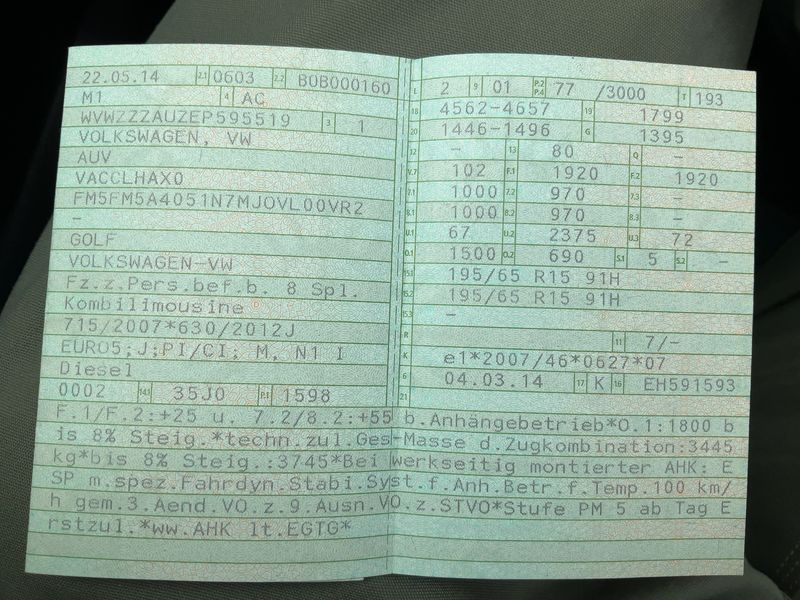 22.05.14 2.1 0603 2.2 B0B000160
M1 4 AC
WVWZZZAUZEP595519 3 1
VOLKSWAGEN, VW
AUV
VACCLHAX0
FM5FM5A4051N7MJOVL00VR2
-
GOLF
VOLKSWAGEN-VW
Fz.z.Pers.bef.b. 8 Spl.
Kombilimousine
715/2007*630/2012J
EURO5;J;PI/CI; M, N1 I
Diesel
0002 14.1 35J0 P.1 1598
L 2 9 01 P.2 P.4 77 /3000 T 193
18 4562-4657 19 1799
20 1446-1496 G 1395
12 - 13 80 Q -
V.7 102 F.1 1920 F.2 1920
7.1 1000 7.2 970 7.3 -
8.1 1000 8.2 970 8.3 -
U.1 67 U.2 2375 U.3 72
O.1 1500 O.2 690 S.1 5 S.2 -
15.1 195/65 R15 91H
15.2 195/65 R15 91H
15.3 -
R 11 7/-
K e1*2007/46*0627*07
6 04.03.14 17 K 16 EH591593
21
F.1/F.2:+25 u. 7.2/8.2:+55 b.Anhängebetrieb*O.1:1800 b
is 8% Steig.*techn.zul.Ges-Masse d.Zugkombination:3445
kg*bis 8% Steig.:3745*Bei werkseitig montierter AHK: E
SP m.spez.Fahrdyn.Stabi.Syst.f.Anh.Betr.f.Temp.100 km/
h gem.3.Aend.VO.z.9.Ausn.VO.z.STVO*Stufe PM 5 ab Tag E
rstzul.*ww.AHK lt.EGTG*